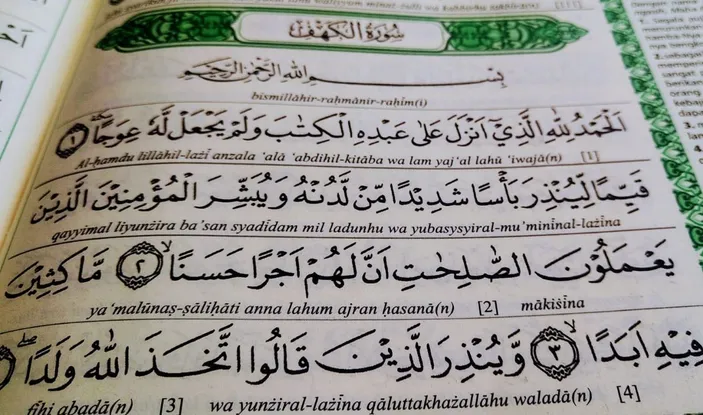 سُورَةُ الْكَهْفِ
بِسْمِ اللهِ الرَّحْمٰنِ الرَّحِيْمِ
bismillāhir-raḥmānir-raḥīm(i)
اَلْحَمْدُ لِلّٰهِ الَّذِيْٓ اَنْزَلَ عَلٰى عَبْدِهِ الْكِتٰبَ وَلَمْ يَجْعَلْ لَّهٗ عِوَجًا ۜ ١
Al-ḥamdu lillāhil-lażī anzala ‘alā ‘abdihil-kitāba wa lam yaj‘al lahū ‘iwajā(n) [1]
قَيِّمًا لِّيُنْذِرَ بَأْسًا شَدِيْدًا مِّنْ لَّدُنْهُ وَيُبَشِّرَ الْمُؤْمِنِيْنَ الَّذِيْنَ
qayyimal liyunżira ba'san syadīdam mil ladunhu wa yubasysyiral-mu'minīnal-lażīna
يَعْمَلُوْنَ الصّٰلِحٰتِ اَنَّ لَهُمْ اَجْرًا حَسَنًا ۙ ٢ مَّاكِثِيْنَ
ya‘malūnaṣ-ṣāliḥāti anna lahum ajran ḥasanā(n) [2] mākiśīna
فِيْهِ اَبَدًا ۙ ٣ وَّيُنْذِرَ الَّذِيْنَ قَالُوا اتَّخَذَ اللهُ وَلَدًا
fīhi abadā(n) [3] wa yunżiral-lażīna qāluttakhażallāhu waladā(n) [4]